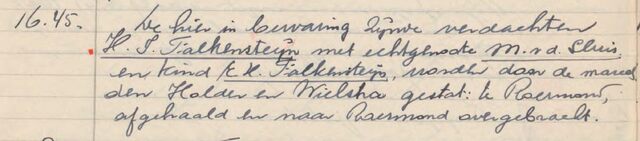 16.45. De hier in bewaring zijnde verdachten
H. S. Falkensteijn met echtgenoote M. v. d. Sluis
en kind E. H. Falkensteijn, worden door de marech
den Holder en Wielsha gestat: te Roermond,
afgehaald en naar Roermond overgebracht.